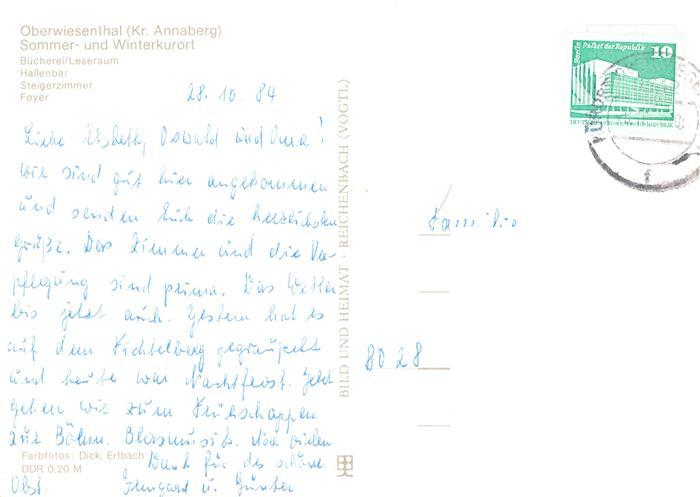 Oberwiesenthal (Kr. Annaberg)
Sommer- und Winterkurort
Bücherei/Leseraum
Hallenbar
Steigerzimmer
Foyer
28. 10. 84
Liebe Elsbeth, Oswald und Oma!
Wir sind gut hier angekommen
und senden Euch die herzlichsten
Grüße. Das Zimmer und die Ver-
pflegung sind prima. Das Wetter
bis jetzt auch. Gestern hat es
auf dem Fichtelberg gegraupelt
und heute war Nachtfrost. Jetzt
gehen wir zum Frühschoppen
zur Böhm. Blasmusik. Nun vielen
Dank für das schöne
Obst. Irmgard u. Günter
Farbfotos: Dick, Erlbach
DDR 0,20 M
BILD UND HEIMAT REICHENBACH (VOGTL)
Berlin Palast der Republik
10
DDR
Familie
8028
f